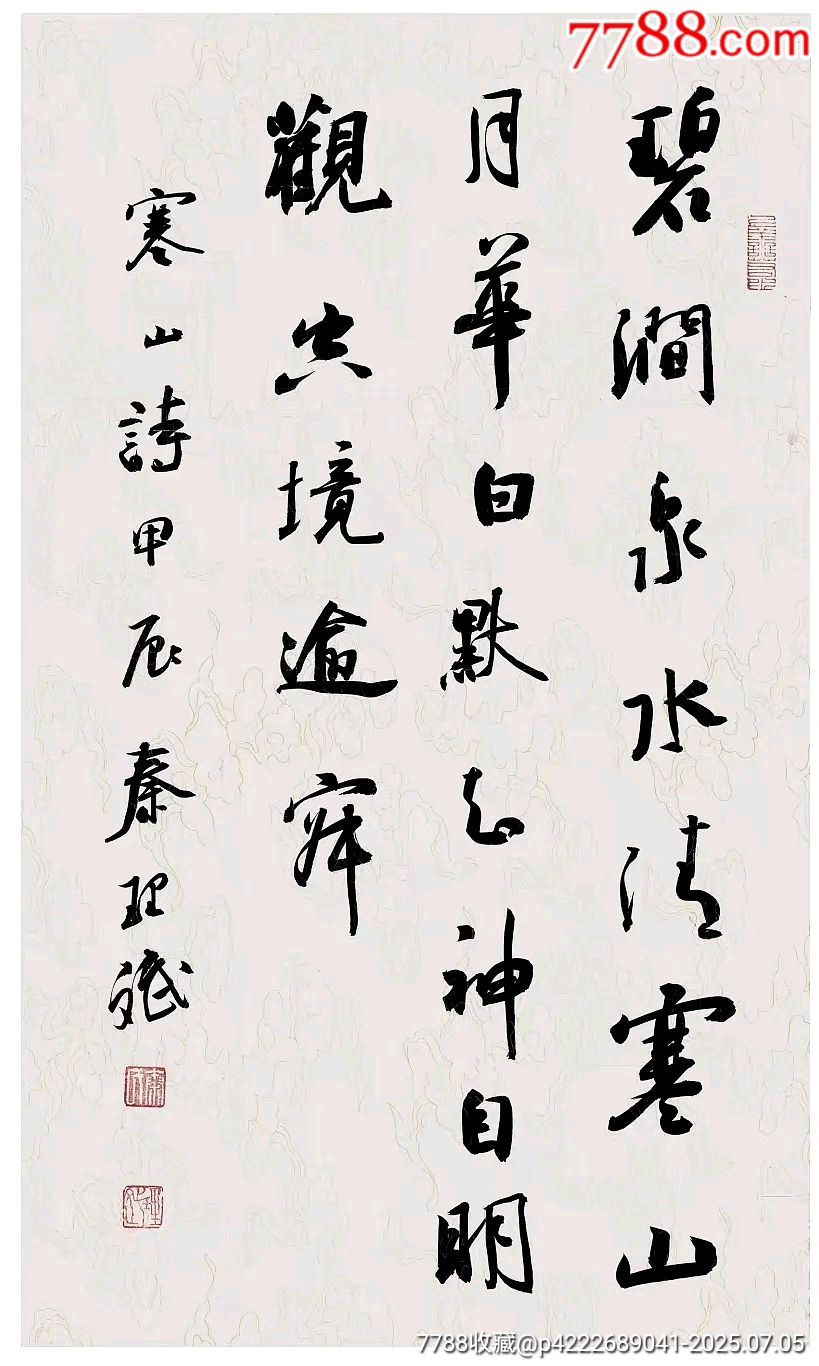 7788.com
碧澗泉水清寒山
月華白默知神自明
觀空境逾寂
寒山詩甲辰秦理
7788收藏@p4222689041-2025.07.05